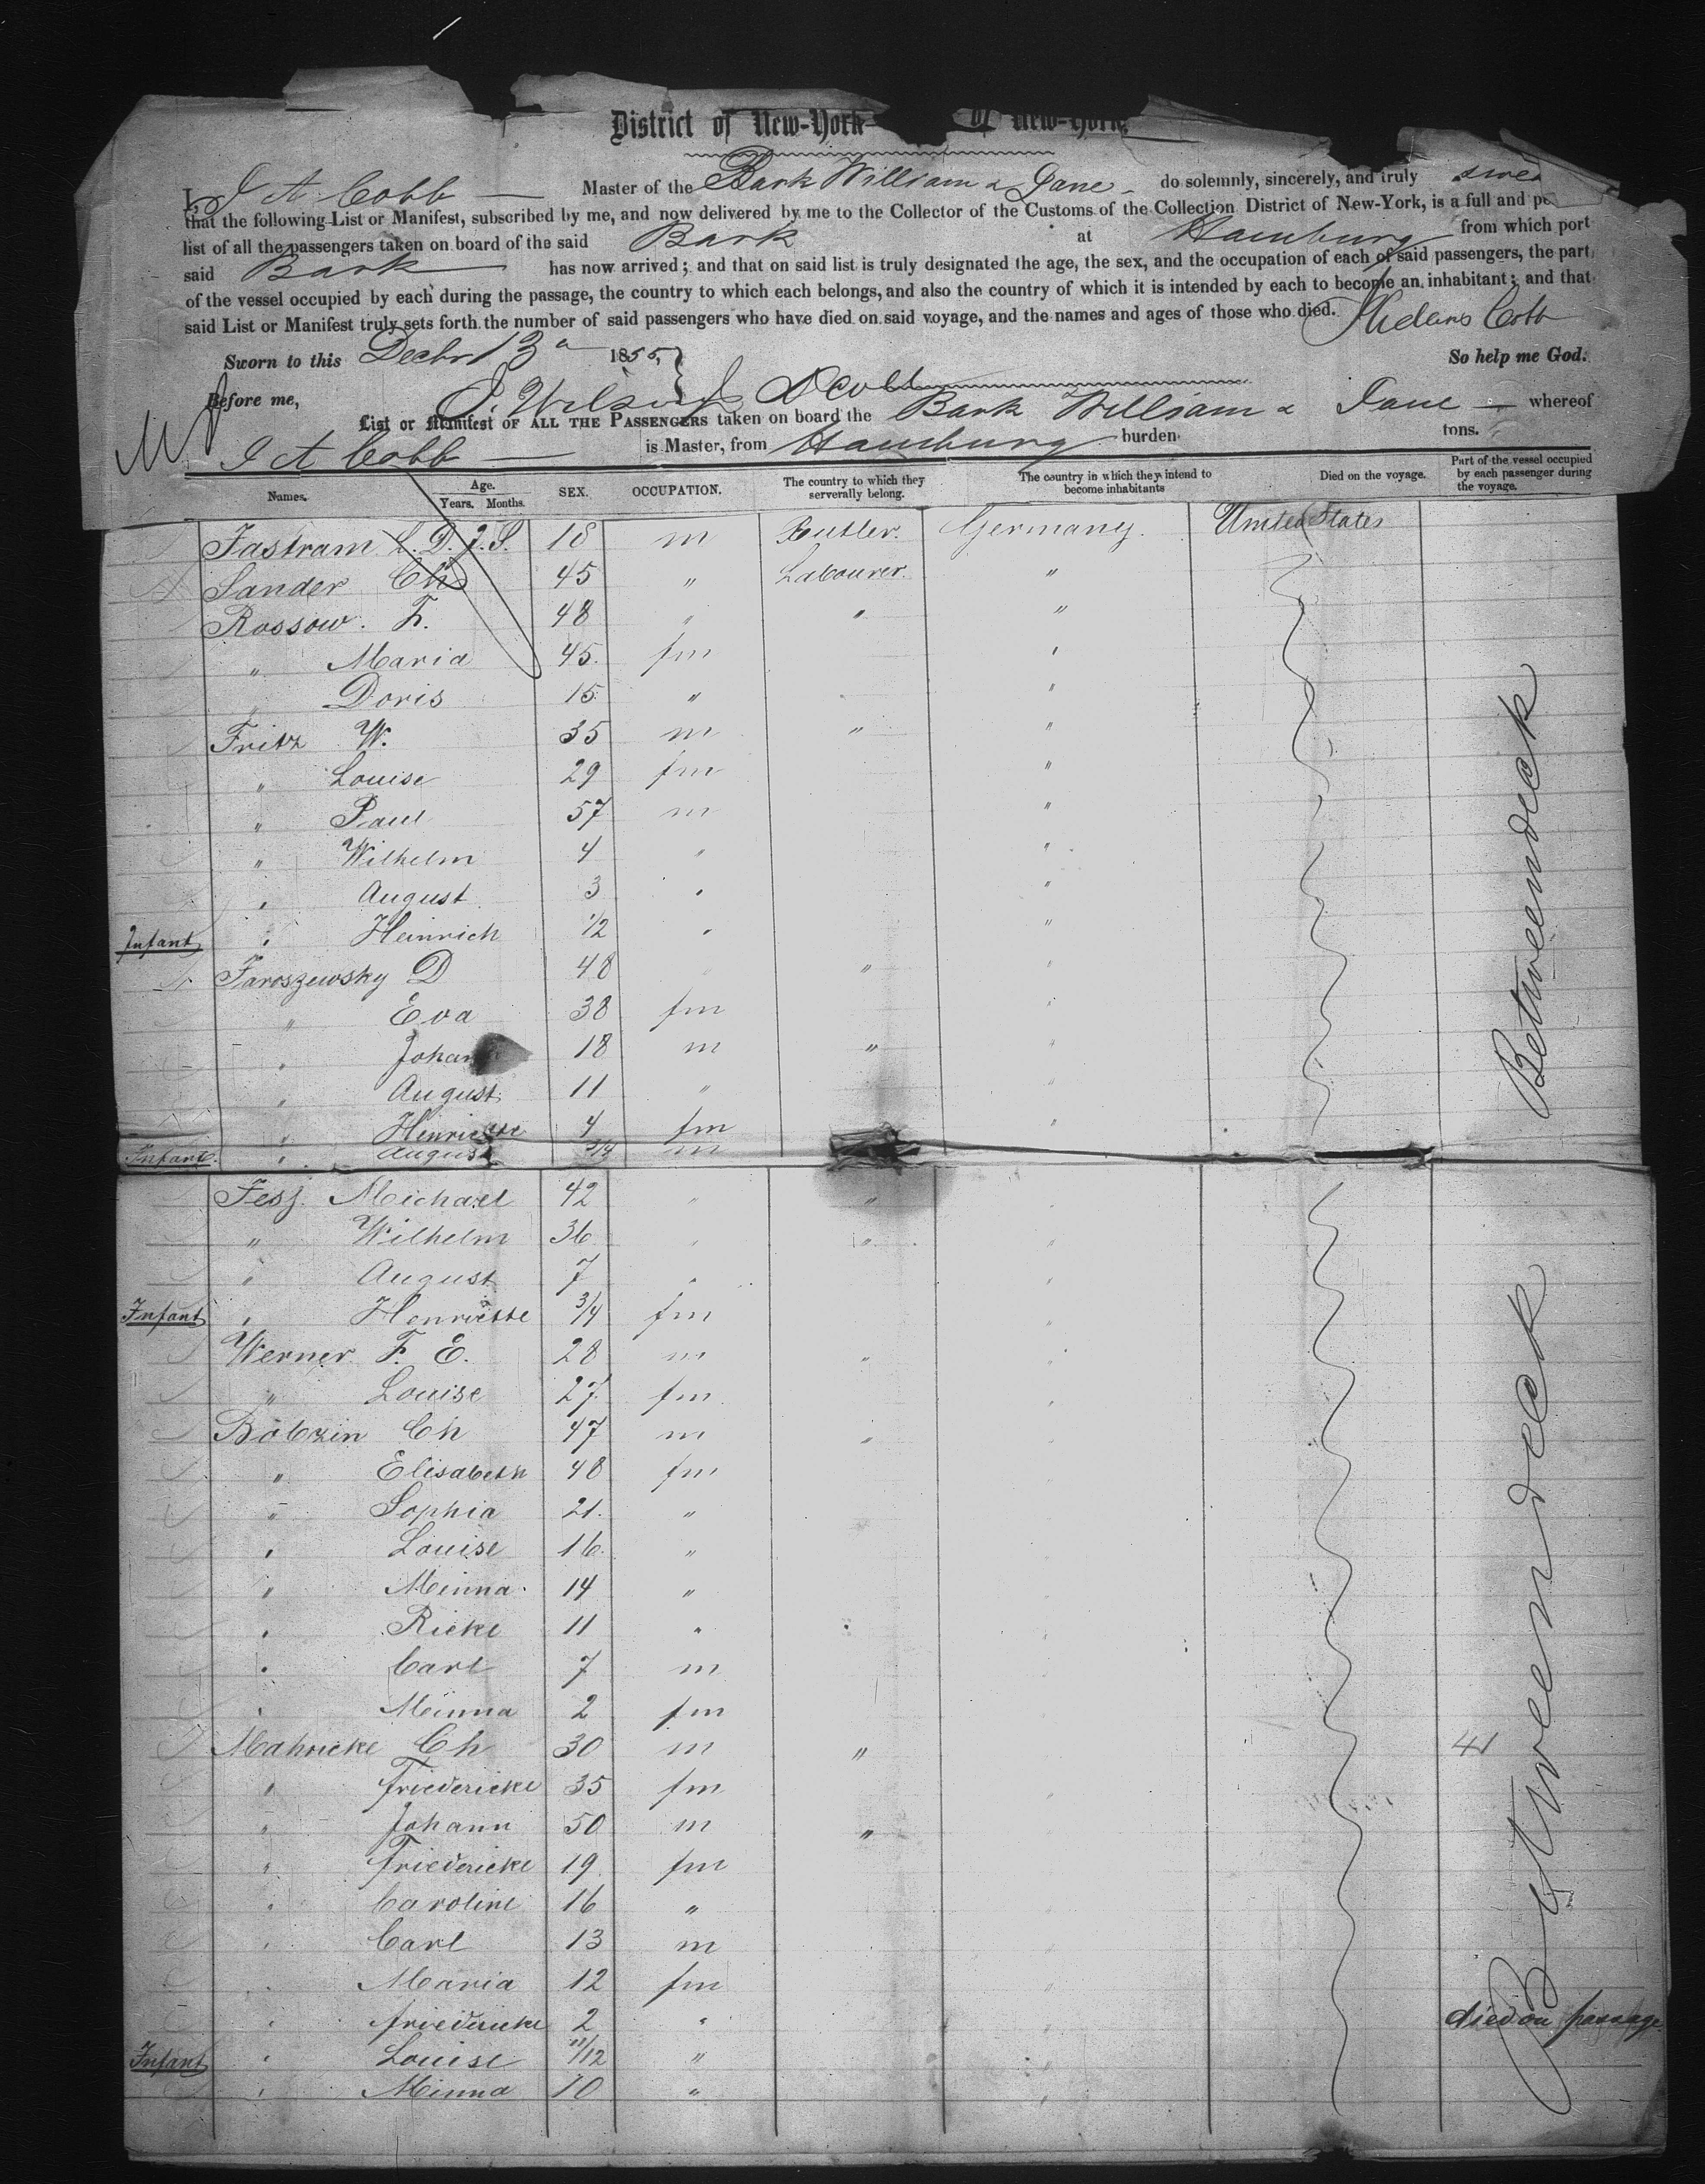 District of New-York of New-York.
I, I A Cobb Master of the Bark William & Jane do solemnly, sincerely, and truly
that the following List or Manifest, subscribed by me, and now delivered by me to the Collector of the Customs of the Collection District of New-York, is a full and
list of all the passengers taken on board of the said Bark at Hamburg from which port
said Bark has now arrived; and that on said list is truly designated the age, the sex, and the occupation of each of said passengers, the part
of the vessel occupied by each during the passage, the country to which each belongs, and also the country of which it is intended by each to become an inhabitant; and that
said List or Manifest truly sets forth the number of said passengers who have died on said voyage, and the names and ages of those who died. Cobb
Sworn to this Decbr 13 1855, So help me God.
Before me,
List or Manifest OF ALL THE PASSENGERS taken on board the Bark William & Jane whereof
I A Cobb is Master, from Hamburg burden tons.
Names. Age. Years. Months. SEX. OCCUPATION. The country to which they serverally belong. The country in which they intend to become inhabitants Died on the voyage. Part of the vessel occupied by each passenger during the voyage.
Jastram 18 m Butler. Germany. United States
Sander Ch 45 " Labourer. "
Rossow. F. 48 " " "
" Maria 45. fm "
" Doris 15 " "
Fritz W. 35 m " "
" Louise 29 fm "
" Paul 57 m "
" Wilhelm 4 " "
" August 3 " "
Infant " Heinrich 1/2 " "
Jaroszewsky D 48 " " "
" Eva 38 fm "
" Johann 18 m " "
" August 11 " "
" Henriette 4 fm "
Infant. " August 3/4 m
Jesz. Michael 42 " " "
" Wilhelm 36 " " "
" August 7 " "
Infant " Henriette 3/4 fm "
Werner F. E. 28 m " "
" Louise 27 fm "
Bobzin Ch 47 m " "
" Elisabeth 48 fm
" Sophia 21. "
" Louise 16. "
" Minna 14 "
" Rieke 11 "
" Carl 7 m
" Minna 2 fm
Mahncke Ch 30 m " 41
" Friedericke 35 fm
" Johann 50 m "
" Friedericke 19 fm
" Caroline 16 "
" Carl 13 m
" Maria 12 fm
" friedericke 2 " died on passage
Infant " Louise 11/12 "
" Minna 10 "
Betweendeck
Betweendeck